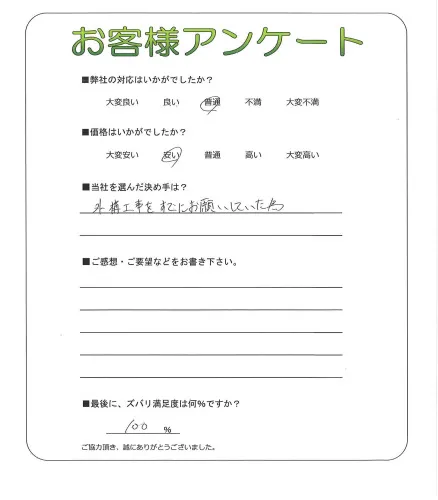 お客様アンケート
■弊社の対応はいかがでしたか?
大変良い 良い 普通 不満 大変不満
■価格はいかがでしたか?
大変安い 安い 普通 高い 大変高い
■当社を選んだ決め手は?
外構工事をすでにお願いしていた為
■ご感想・ご要望などをお書き下さい。
■最後に、ズバリ満足度は何%ですか?
100 %
ご協力頂き、誠にありがとうございました。